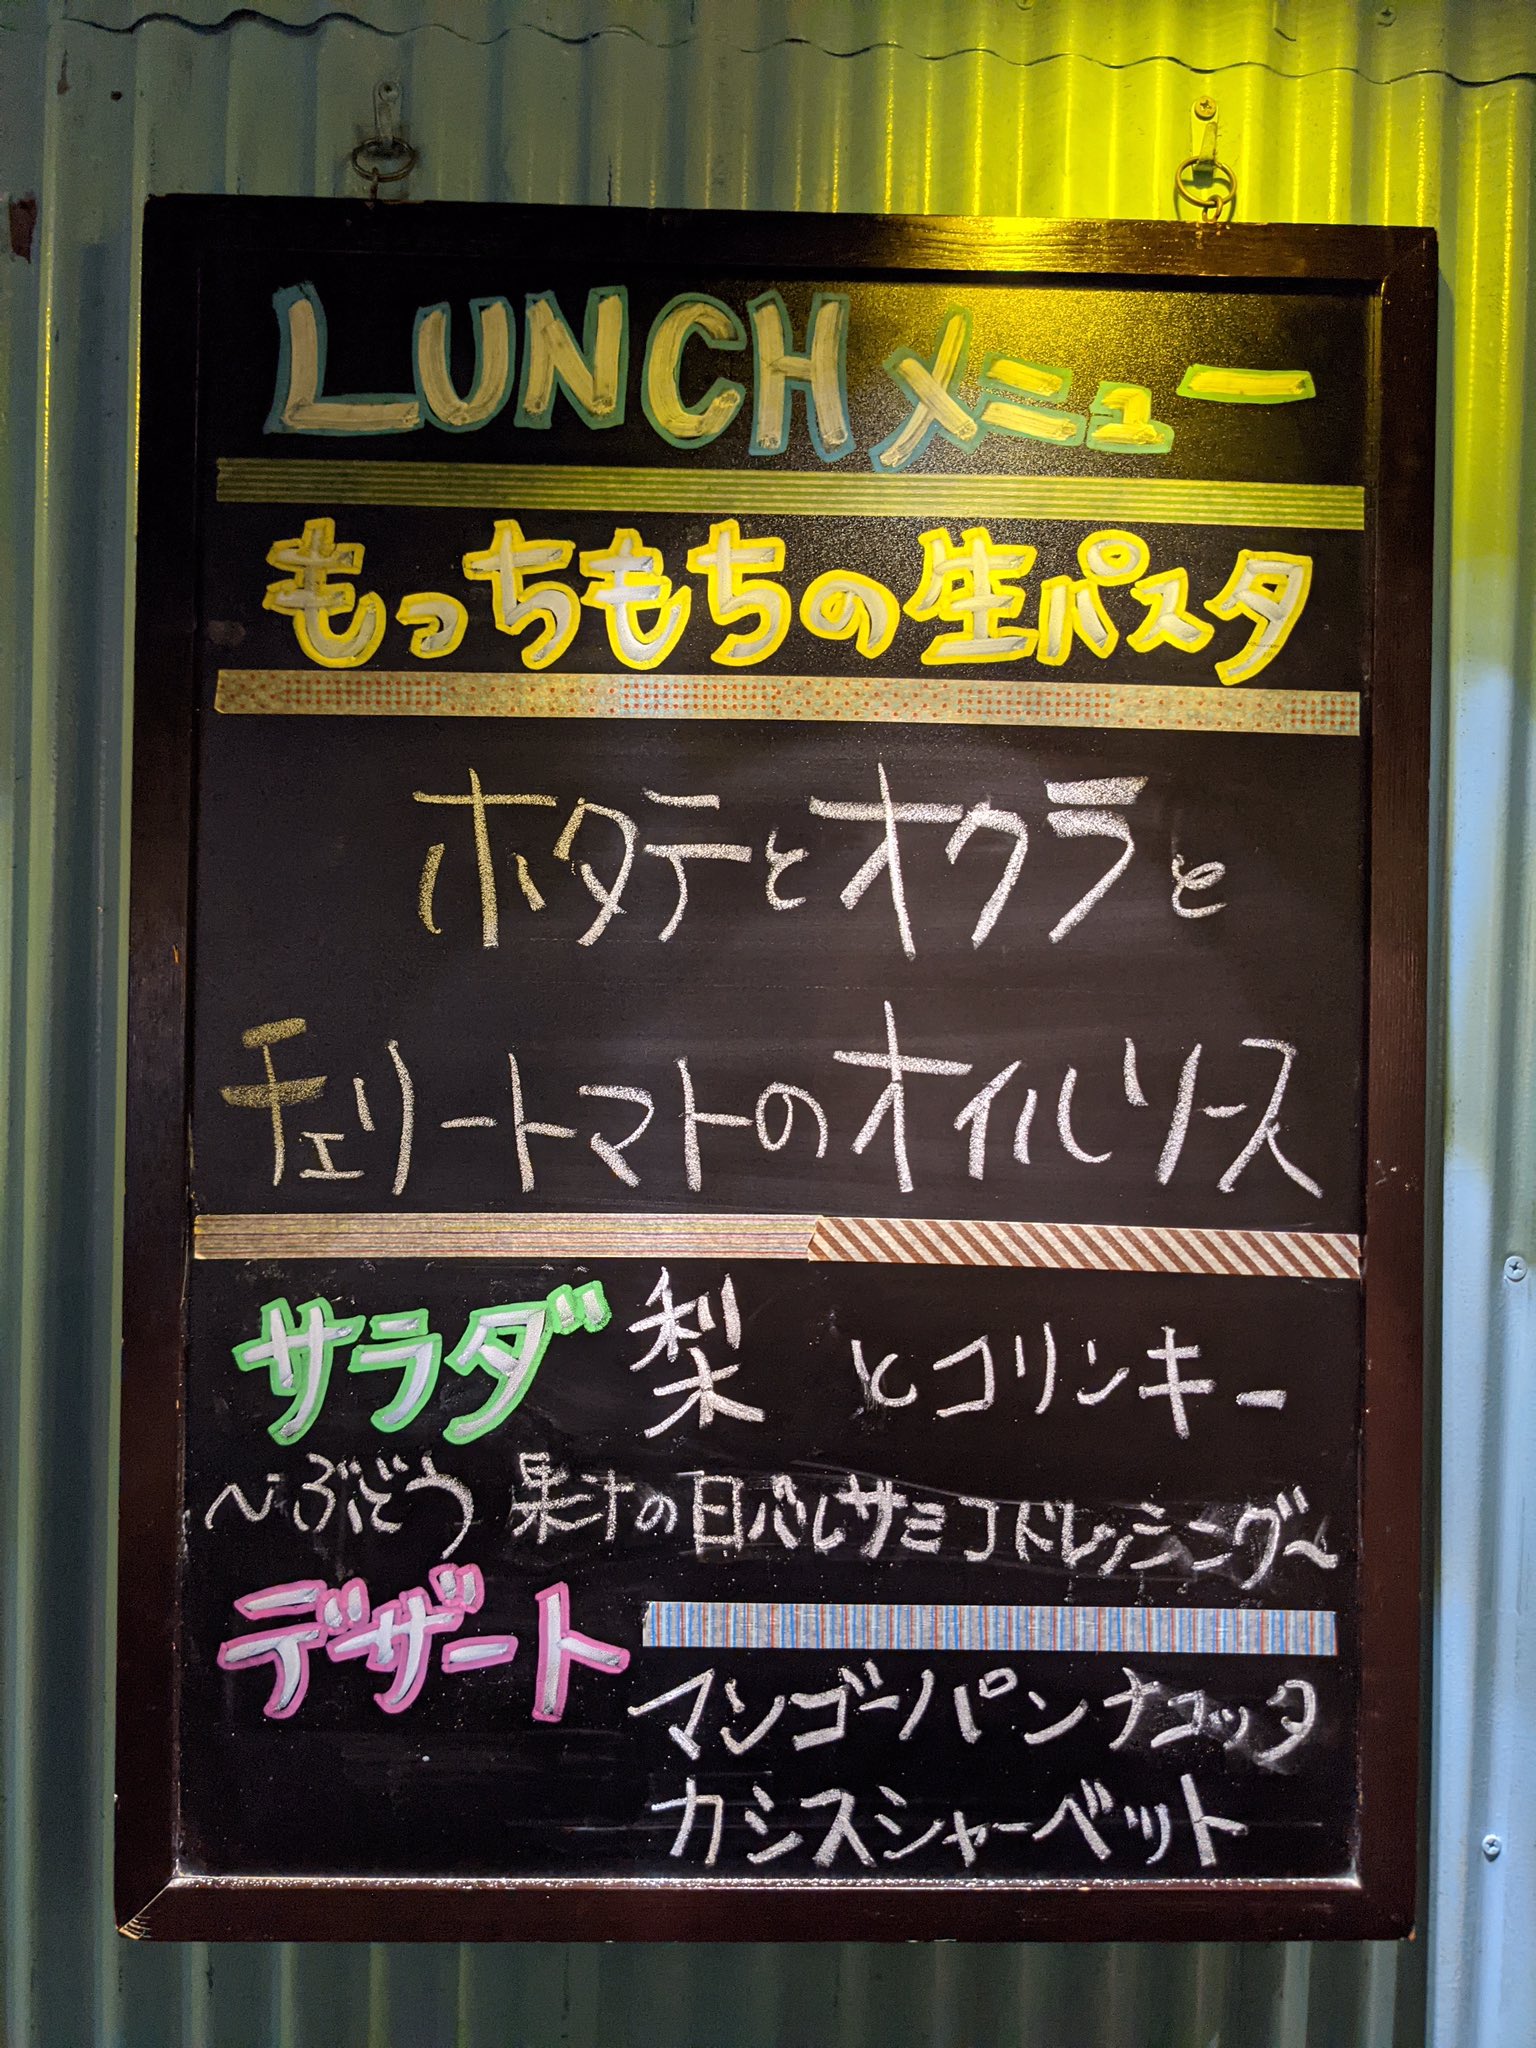 LUNCHメニュー
もっちもちの生パスタ
ホタテとオクラと
チェリートマトのオイルソース
サラダ 梨 とコリンキー
〜ぶどう果汁の目バルサミコドレッシング〜
デザート
マンゴーパンナコッタ
カシスシャーベット